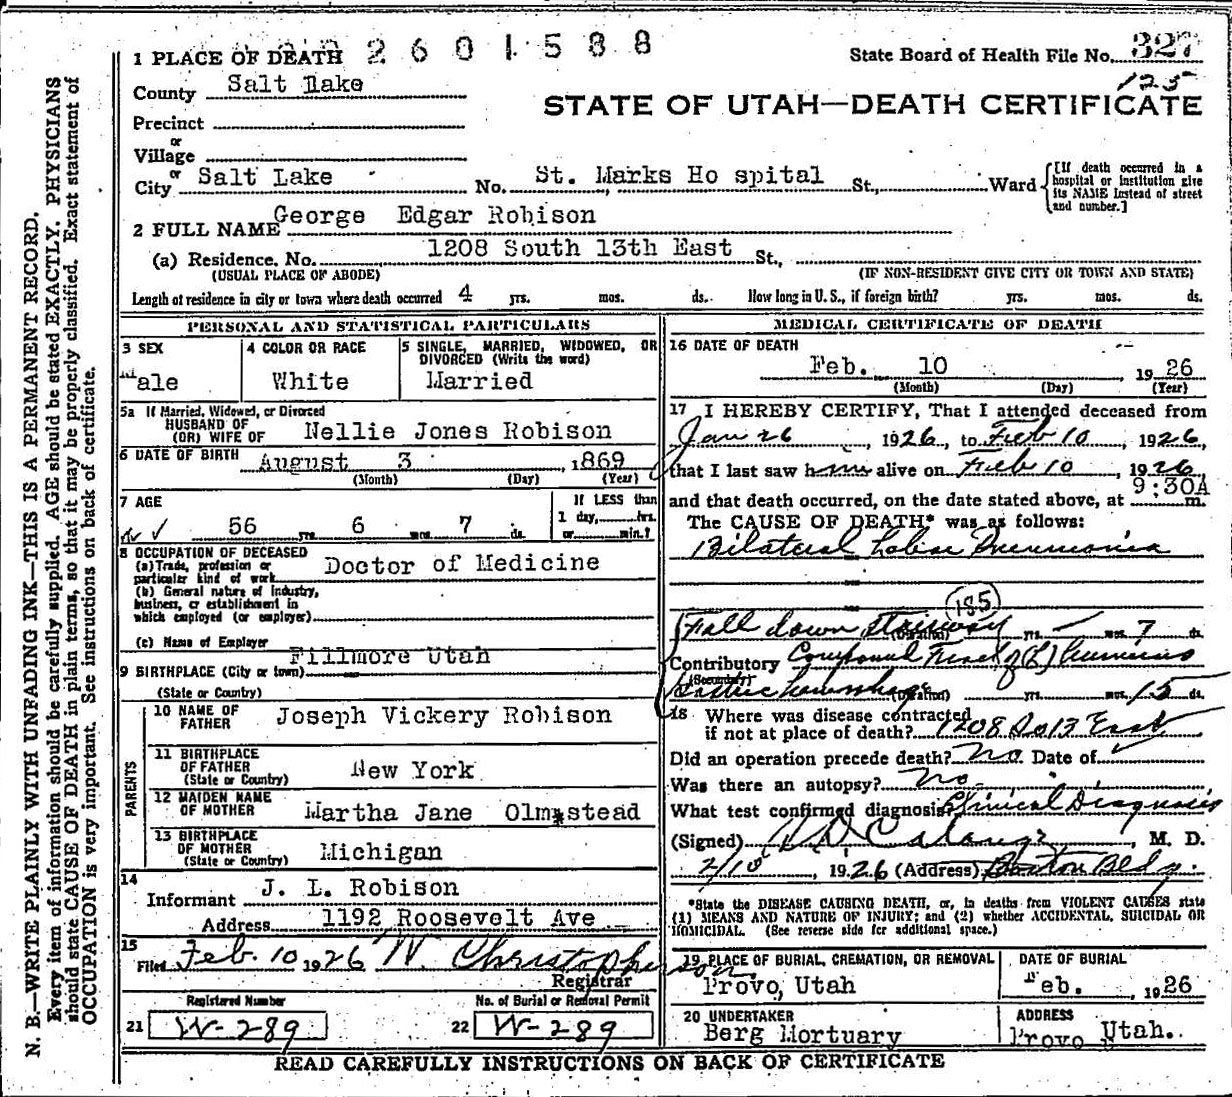 1 PLACE OF DEATH 2601588
State Board of Health File No. 327
125
County Salt Lake
STATE OF UTAH—DEATH CERTIFICATE
Precinct
or
Village
or
City Salt Lake No. St. Marks Ho spital St., Ward
[If death occurred in a hospital or institution give its NAME instead of street and number.]
2 FULL NAME George Edgar Robison
(a) Residence. No. 1208 South 13th East St.,
(USUAL PLACE OF ABODE) (IF NON-RESIDENT GIVE CITY OR TOWN AND STATE)
Length of residence in city or town where death occurred 4 yrs. mos. ds. How long in U. S., if foreign birth? yrs. mos. ds.
PERSONAL AND STATISTICAL PARTICULARS
3 SEX
Male
4 COLOR OR RACE
White
5 SINGLE, MARRIED, WIDOWED, OR
DIVORCED (Write the word)
Married
5a If Married, Widowed, or Divorced
HUSBAND OF
(OR) WIFE OF Nellie Jones Robison
6 DATE OF BIRTH August 3, 1869
(Month) (Day) (Year)
7 AGE
56 yrs 6 mos. 7 ds.
If LESS than
1 day, hrs.
or min.?
8 OCCUPATION OF DECEASED
(a) Trade, profession or
particular kind of work Doctor of Medicine
(b) General nature of Industry,
business, or establishment in
which employed (or employer)
(c) Name of Employer
9 BIRTHPLACE (City or town) Fillmore Utah
(State or Country)
PARENTS
10 NAME OF
FATHER Joseph Vickery Robison
11 BIRTHPLACE
OF FATHER
(State or Country) New York
12 MAIDEN NAME
OF MOTHER Martha Jane Olmstead
13 BIRTHPLACE
OF MOTHER
(State or Country) Michigan
14
Informant J. L. Robison
Address 1192 Roosevelt Ave
15
Filed Feb. 10 1926 W. Christopherson
Registrar
Registered Number
21 W-289
No. of Burial or Removal Permit
22 W-289
MEDICAL CERTIFICATE OF DEATH
16 DATE OF DEATH
Feb. 10 1926
(Month) (Day) (Year)
17 I HEREBY CERTIFY, That I attended deceased from
Jan 26, 1926, to Feb 10, 1926,
that I last saw him alive on Feb 10, 1926
and that death occurred, on the date stated above, at 9:30A m.
The CAUSE OF DEATH* was as follows:
Bilateral Lobar Pneumonia
185
Fall down Stairway (Duration) yrs. — mos. 7 ds.
Contributory Compound Frac of (L) humerus
(Secondary)
Gastric hemorrhage (Duration) yrs. mos. 15 ds.
18 Where was disease contracted
if not at place of death? 1208 So 13 East
Did an operation precede death? No Date of
Was there an autopsy? No
What test confirmed diagnosis? Clinical Diagnosis
(Signed) M. D.
2/10, 1926 (Address) Boston Bldg.
*State the DISEASE CAUSING DEATH, or, in deaths from VIOLENT CAUSES state
(1) MEANS AND NATURE OF INJURY; and (2) whether ACCIDENTAL, SUICIDAL OR
HOMICIDAL. (See reverse side for additional space.)
19 PLACE OF BURIAL, CREMATION, OR REMOVAL
Provo, Utah
DATE OF BURIAL
Feb. , 1926
20 UNDERTAKER
Berg Mortuary
ADDRESS
Provo Utah.
READ CAREFULLY INSTRUCTIONS ON BACK OF CERTIFICATE
N. B.—WRITE PLAINLY WITH UNFADING INK—THIS IS A PERMANENT RECORD.
Every item of information should be carefully supplied. AGE should be stated EXACTLY. PHYSICIANS
should state CAUSE OF DEATH in plain terms, so that it may be properly classified. Exact statement of
OCCUPATION is very important. See instructions on back of certificate.